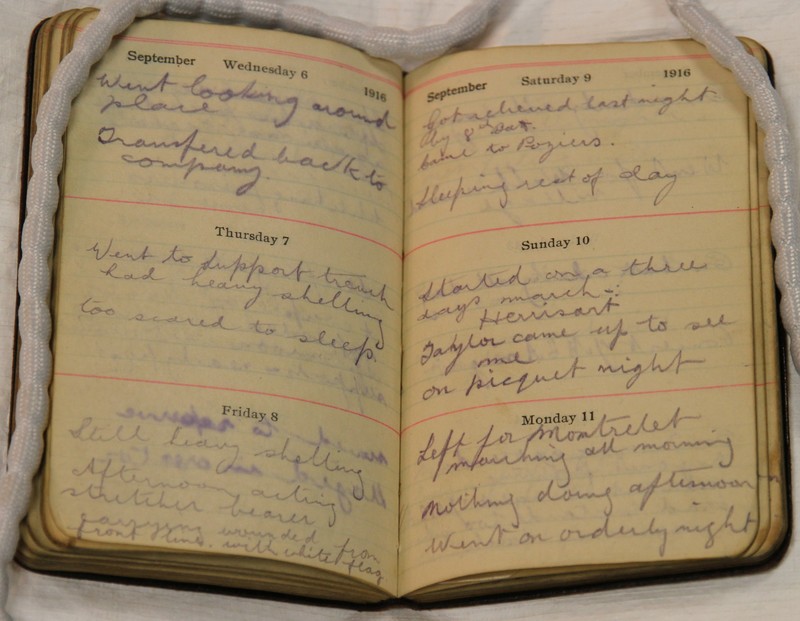 September Wednesday 6 1916
Went looking around
place
Transfered back to
company.
Thursday 7
Went to support trench
had heavy shelling
too scared to sleep.
Friday 8
Still heavy shelling
Afternoon acting
stretcher bearer
carrying wounded from
front line. with white flag
September Saturday 9 1916
Got relieved last night
by 8th Bat.
came to Poziers.
Sleeping rest of day
Sunday 10
Started on a three
days march -:
Herrisart
Taylor came up to see
me
on picquet night
Monday 11
Left for Montrelet
marching all morning
nothing doing afternoon
Went on orderly night